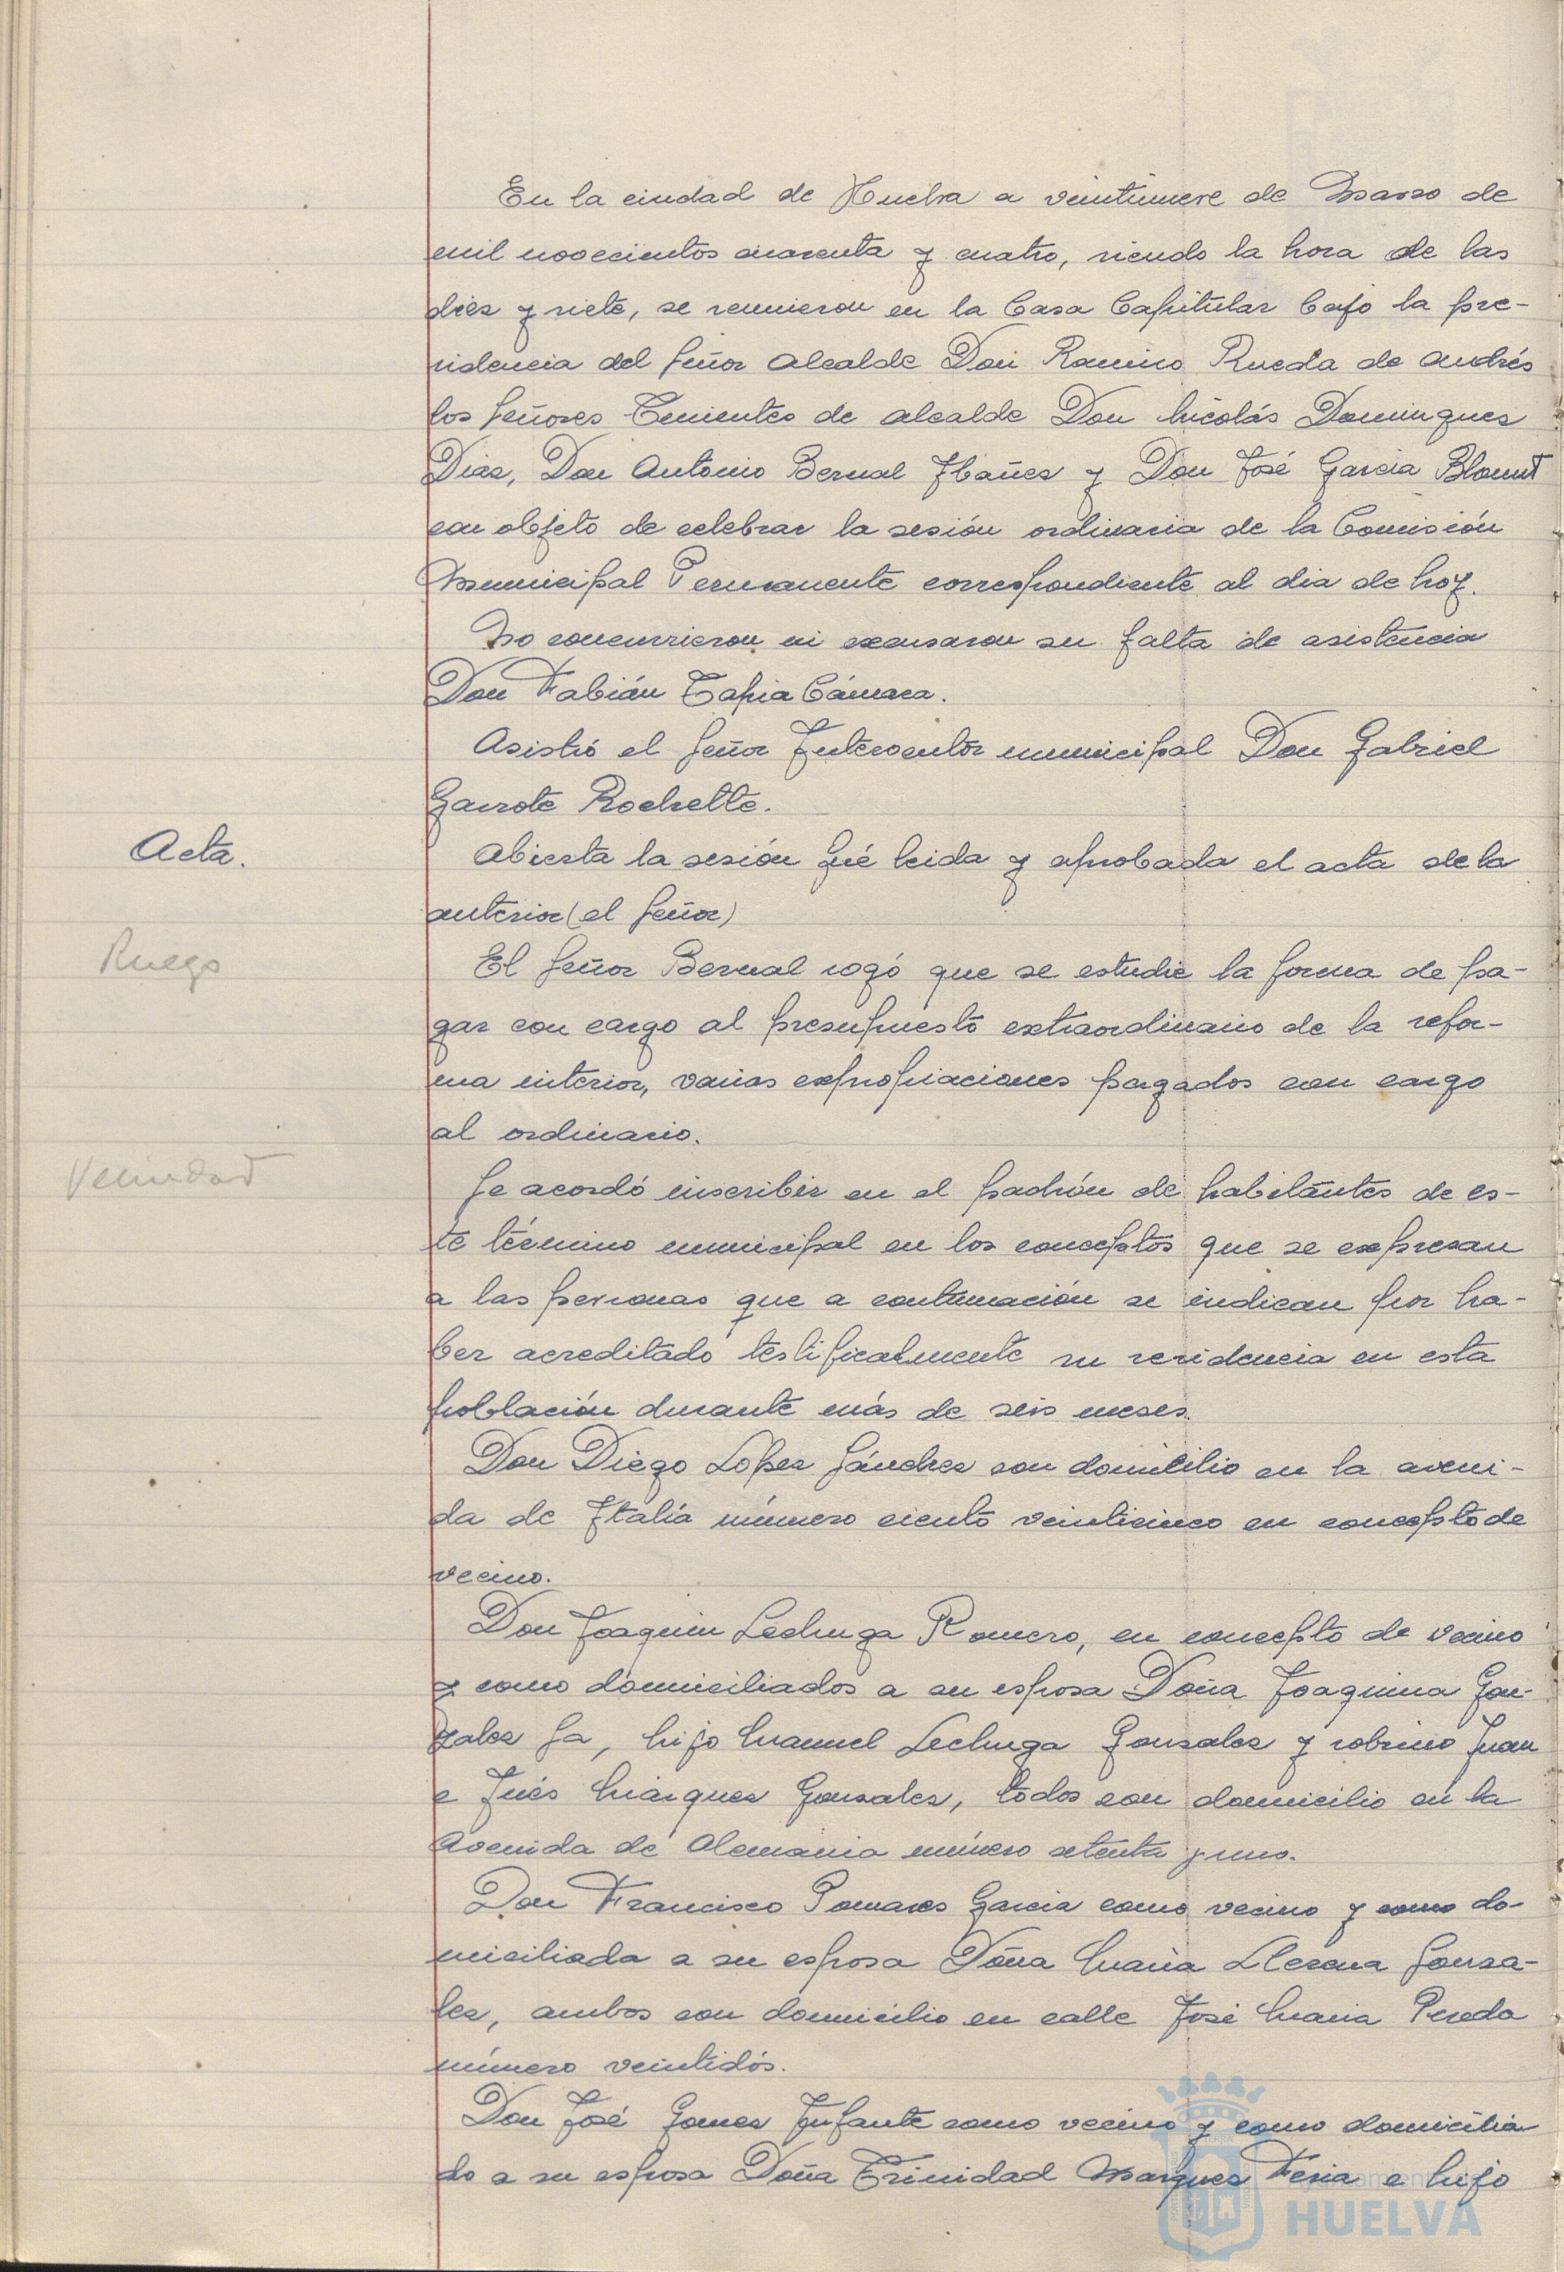 En la ciudad de Huelva a veintinueve de Marzo de
mil novecientos cuarenta y cuatro, siendo la hora de las
diez y siete, se reunieron en la Casa Capitular bajo la pre-
sidencia del Señor Alcalde Don Ramiro Rueda de Andrés
los Señores Tenientes de Alcalde Don Nicolás Dominguez
Diaz, Don Antonio Bernal Ibañez y Don José Garcia Blount
con objeto de celebrar la sesión ordinaria de la Comisión
Municipal Permanente correspondiente al dia de hoy.
No concurrieron ni excusaron su falta de asistencia
Don Fabián Tapia Cámara.
Asistió el Señor Interventor municipal Don Gabriel
Garrote Rochette.
Acta.
Abierta la sesión fué leida y aprobada el acta de la
anterior (el Señor)
Ruego
El Señor Bernal rogó que se estudie la forma de pa-
gar con cargo al presupuesto extraordinario de la refor-
ma interior, varias expropiaciones pagados con cargo
al ordinario.
Vecindad
Se acordó inscribir en el padrón de habitantes de es-
te término municipal en los conceptos que se expresan
a las personas que a continuación se indican por ha-
ber acreditado testificalmente su residencia en esta
población durante más de seis meses.
Don Diego López Sánchez con domicilio en la aveni-
da de Italia número ciento veinticinco en concepto de
vecino.
Don Joaquin Lechuga Romero, en concepto de vecino
y como domiciliados a su esposa Doña Joaquina Gon-
zalez Sa, hijo Manuel Lechuga Gonzalez y sobrino Juan
e Inés Márquez Gonzalez, todos con domicilio en la
Avenida de Alemania número setenta y uno.
Don Francisco Pomares Garcia como vecino y como do-
miciliada a su esposa Doña Maria Llerena Gonza-
lez, ambos con domicilio en calle José Maria Pereda
número veintidós.
Don José Gomez Infante como vecino y como domicilia
do a su esposa Doña Trinidad Marquez Feria e hijo
Ayuntamiento
HUELVA